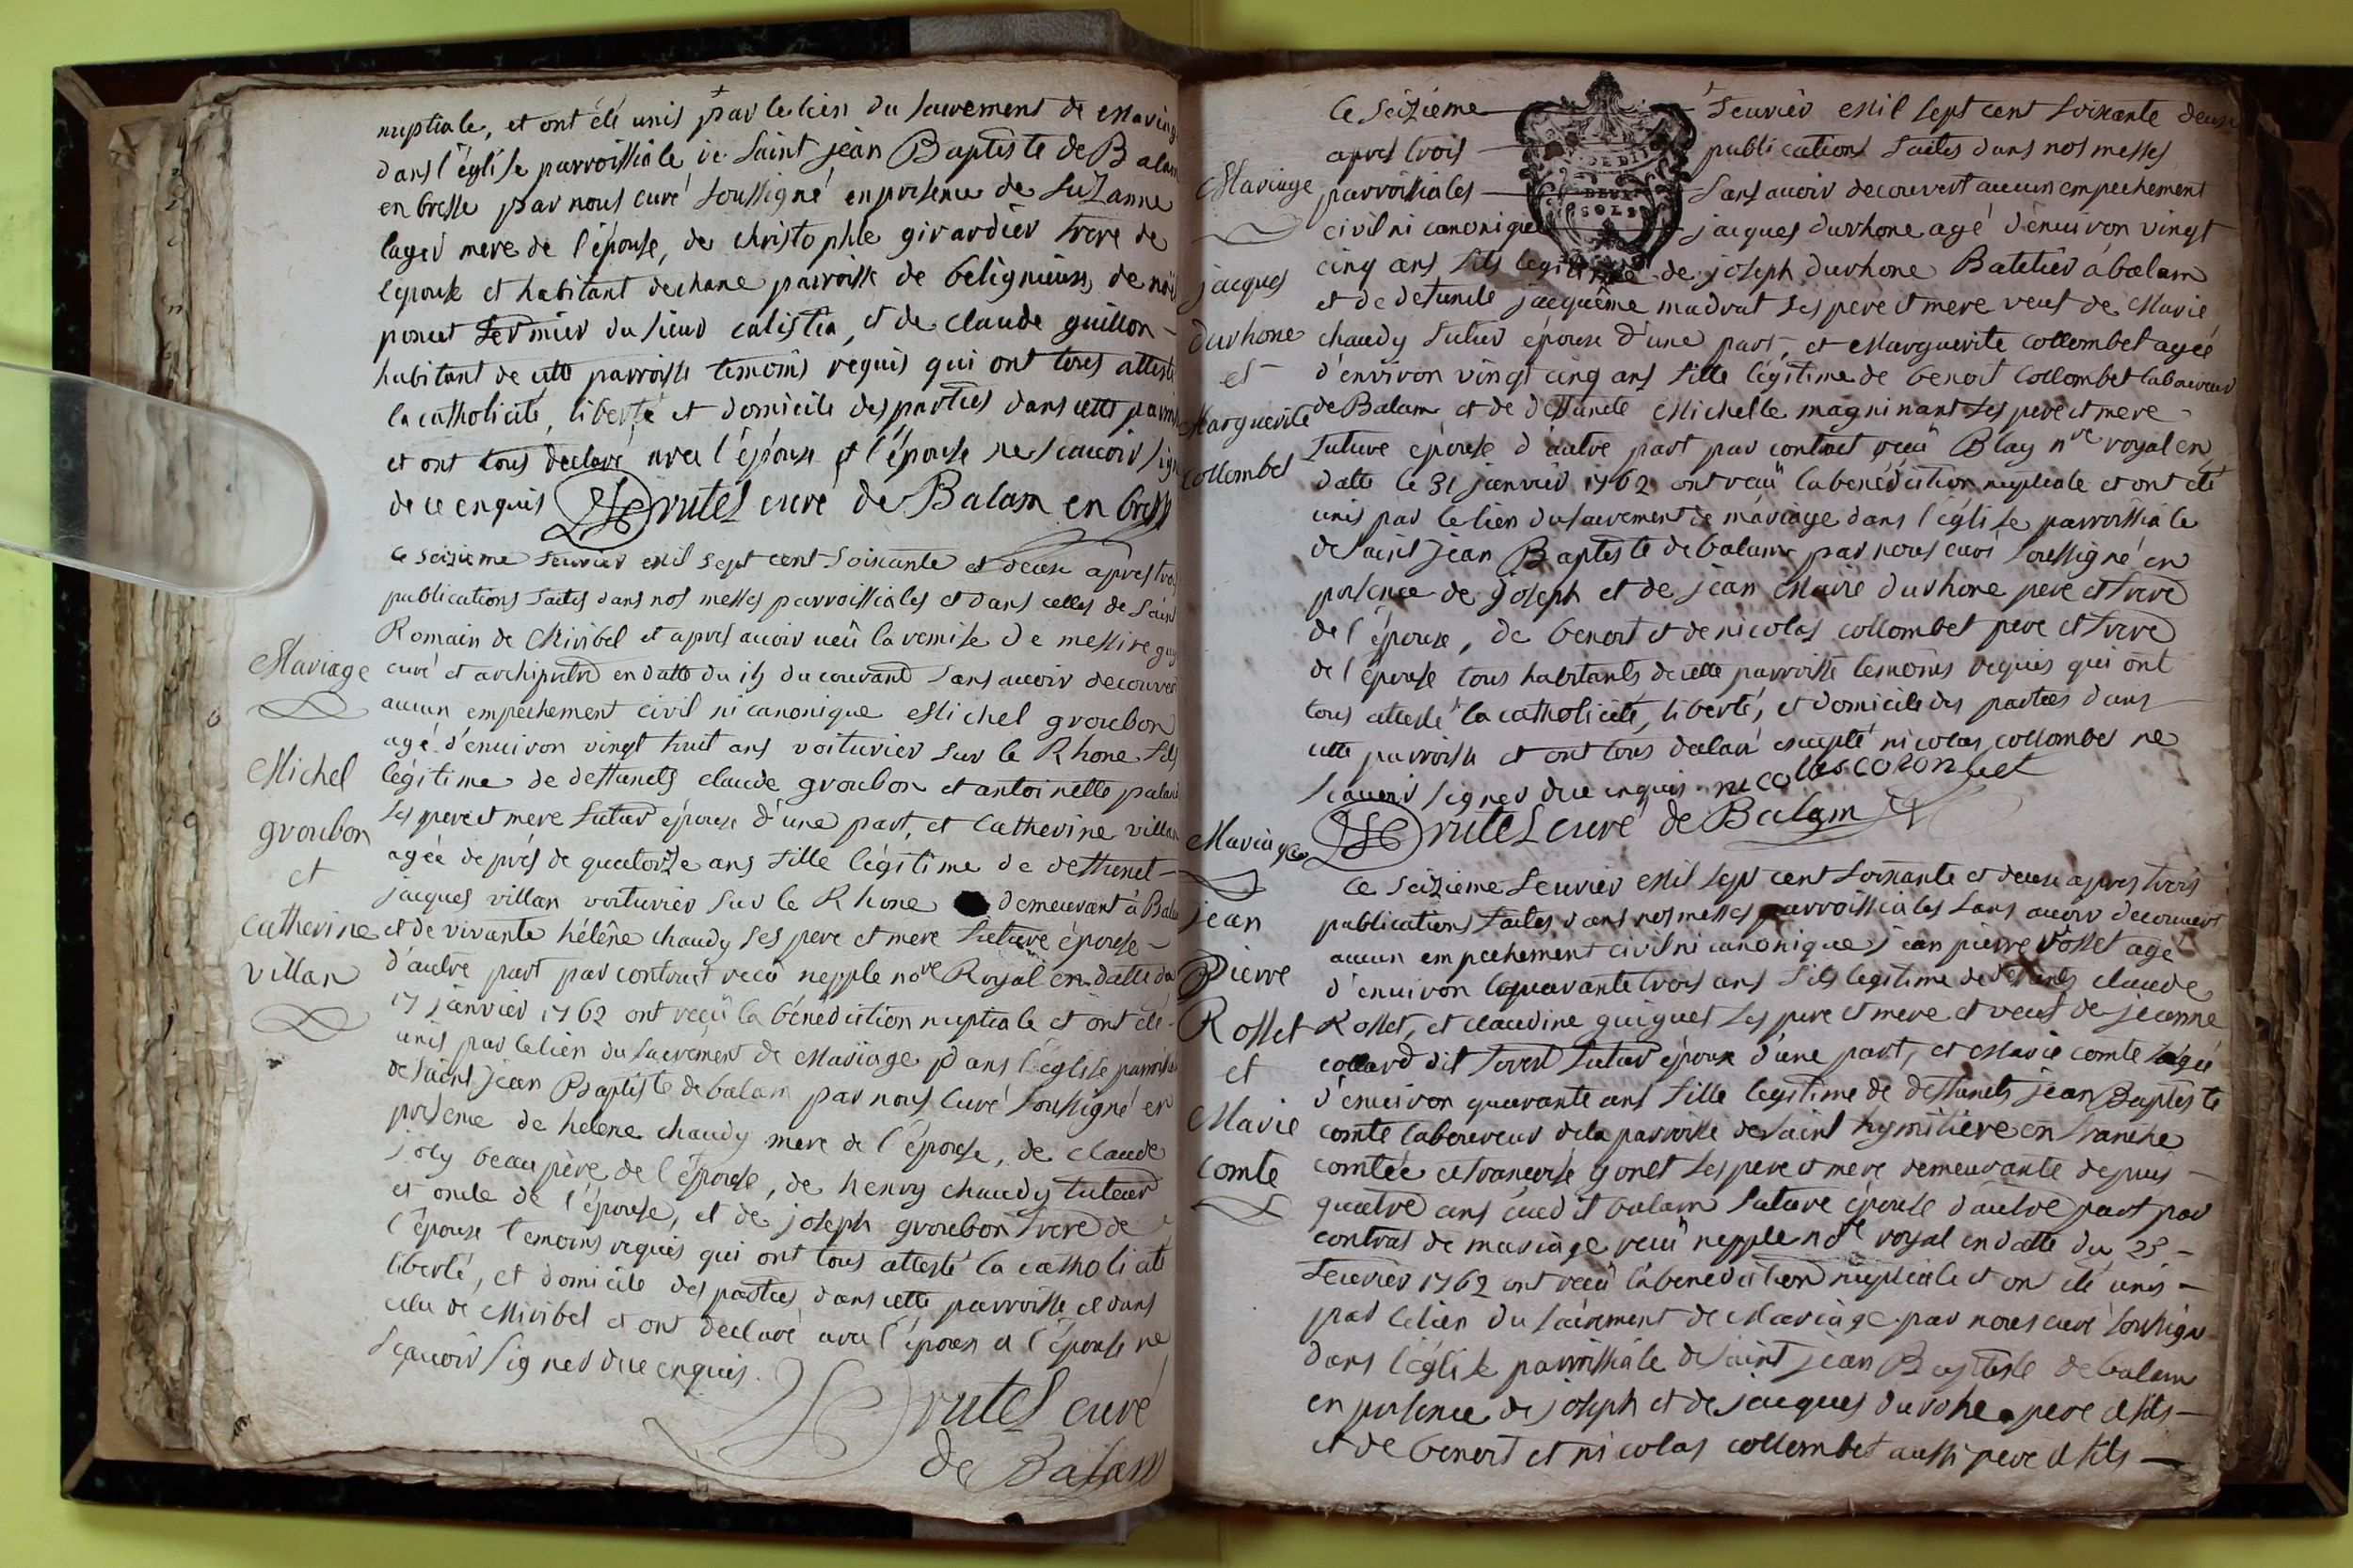 nuptiale, et ont été unis par le lien du sacrement de Mariage
dans l'église parroissiale de Saint jean Baptiste de Balam
en bresse par nous curé soussigné en presence de Suzanne
lager mere de l'épouse, de christophle girardier frere de
l'epouse et habitant de chane parroisse de belignieux, de
poncet fermier du sieur calistia, et de claude guillon -
habitant de cette parroisse temoins requis qui ont tous attesté
la catholicité, liberté et domicile des parties dans cette parroisse
et ont tous declaré avec l'époux et l'épouse ne scauoir signer
de ce enquis Drutel curé de Balam en bresse
Mariage
Michel
groubon
et
catherine
villan
le seizieme feurier Mil sept cent soixante et deux apres trois
publications faites dans nos messes parroissiales et dans celles de Saint
Romain de Miribel et apres auoir ueû la remise de messire guy
curé et archiprêtre en datte du 15 du courant sans auoir decouvert
aucun empechement civil ni canonique Michel groubon
agé d'enuiron vingt huit ans voiturier sur le Rhone fils
légitime de deffuncts claude groubon et antoinette
ses pere et mere futur époux d'une part, et Catherine villan
agée de prés de quatorze ans fille légitime de deffunct -
jacques villan voiturier sur le Rhone demeurant à Balam
et de vivante hélène chaudy ses pere et mere future épouse -
d'autre part par contract receu nepple nore Royal en datte du
17 janvier 1762 ont reçû la bénédiction nuptiale et ont été
unis par le lien du sacrement de Mariage dans l'église parroissiale
de Saint Jean Baptiste de balam par nous Curé soussigné en
presence de helene chaudy mere de l'épouse, de claude
joly beaupère de l'épouse, de henry chaudy tuteur
et oncle de l'épouse, et de joseph groubon frere de
l'époux temoins requis qui ont tous attesté la catholicité
liberté, et domicile des parties dans cette parroisse et dans
celle de Miribel et ont declaré avec l'époux et l'épouse ne
sçauoir signer de ce enquis.
Drutel curé
de Balam
Mariage
jacques
durhone
et
Marguerite
Collombet
le seizieme feurier Mil sept cent soixante deux
apres trois publications faites dans nos messes
parroissiales sans auoir decouvert aucun empechement
civil ni canonique jacques durhone agé d'enuiron vingt
DEUX
SOLS
cinq ans fils legitime de joseph durhone Batelier à balam
et de defuncte jacquême madrat ses pere et mere veuf de Marie
chaudy futur époux d'une part, et Marguerite collombet agée
d'environ vingt cinq ans fille légitime de benoit Collombet laboureur
de Balam et de deffuncte Michelle magninant ses pere et mere -
future épouse d'autre part par contract reçû Blay nre royal en
datte le 31 janvier 1762 ont reçû la bénédiction nuptiale et ont été
unis par le lien du sacrement de mariage dans l'église parroissiale
de Saint Jean Baptiste de balam par nous curé soussigné en
presence de Joseph et de jean Marie durhone pere et frere
de l'époux, de benoit et de nicolas collombet pere et frere
de l'épouse tous habitants de cette parroisse temoins requis qui ont
tous attesté la catholicité, liberté, et domicile des parties dans
cette parroisse et ont tous declaré excepté nicolas collombet ne
scauoir signer de ce enquis. nicolas colonbet
Drutel curé de Balam
Mariage
jean
Pierre
Rosset
et
Marie
Comte
le seizieme feurier Mil sept cent soixante et deux apres trois
publications faites dans nos messes parroissiales sans auoir decouvert
aucun empechement civil ni canonique jean pierre Rosset agé
d'enuiron quarante trois ans fils legitime de deffuncts claude
Rosset, et claudine guiguet ses pere et mere et veuf de jeanne
collard dit forest futur époux d'une part, et Marie comte agée
d'enuiron quarante ans fille légitime de deffuncts jean Baptiste
comte laboureur de la parroisse de saint hymitiere en franche
comtée et francoise gonet ses pere et mere demeurante depuis -
quatre ans audit balam future épouse d'autre part par
contrat de mariage reçû nepple nore royal en datte du 25 -
feurier 1762 ont reçû la benediction nuptiale et ont été unis -
par le lien du sacrement de Mariage par nous curé soussigné
dans l'église parroissiale de saint jean Baptiste de balam
en presence de joseph et de jacques durhone pere et fils -
et de benoit et nicolas collombet aussi pere et fils -